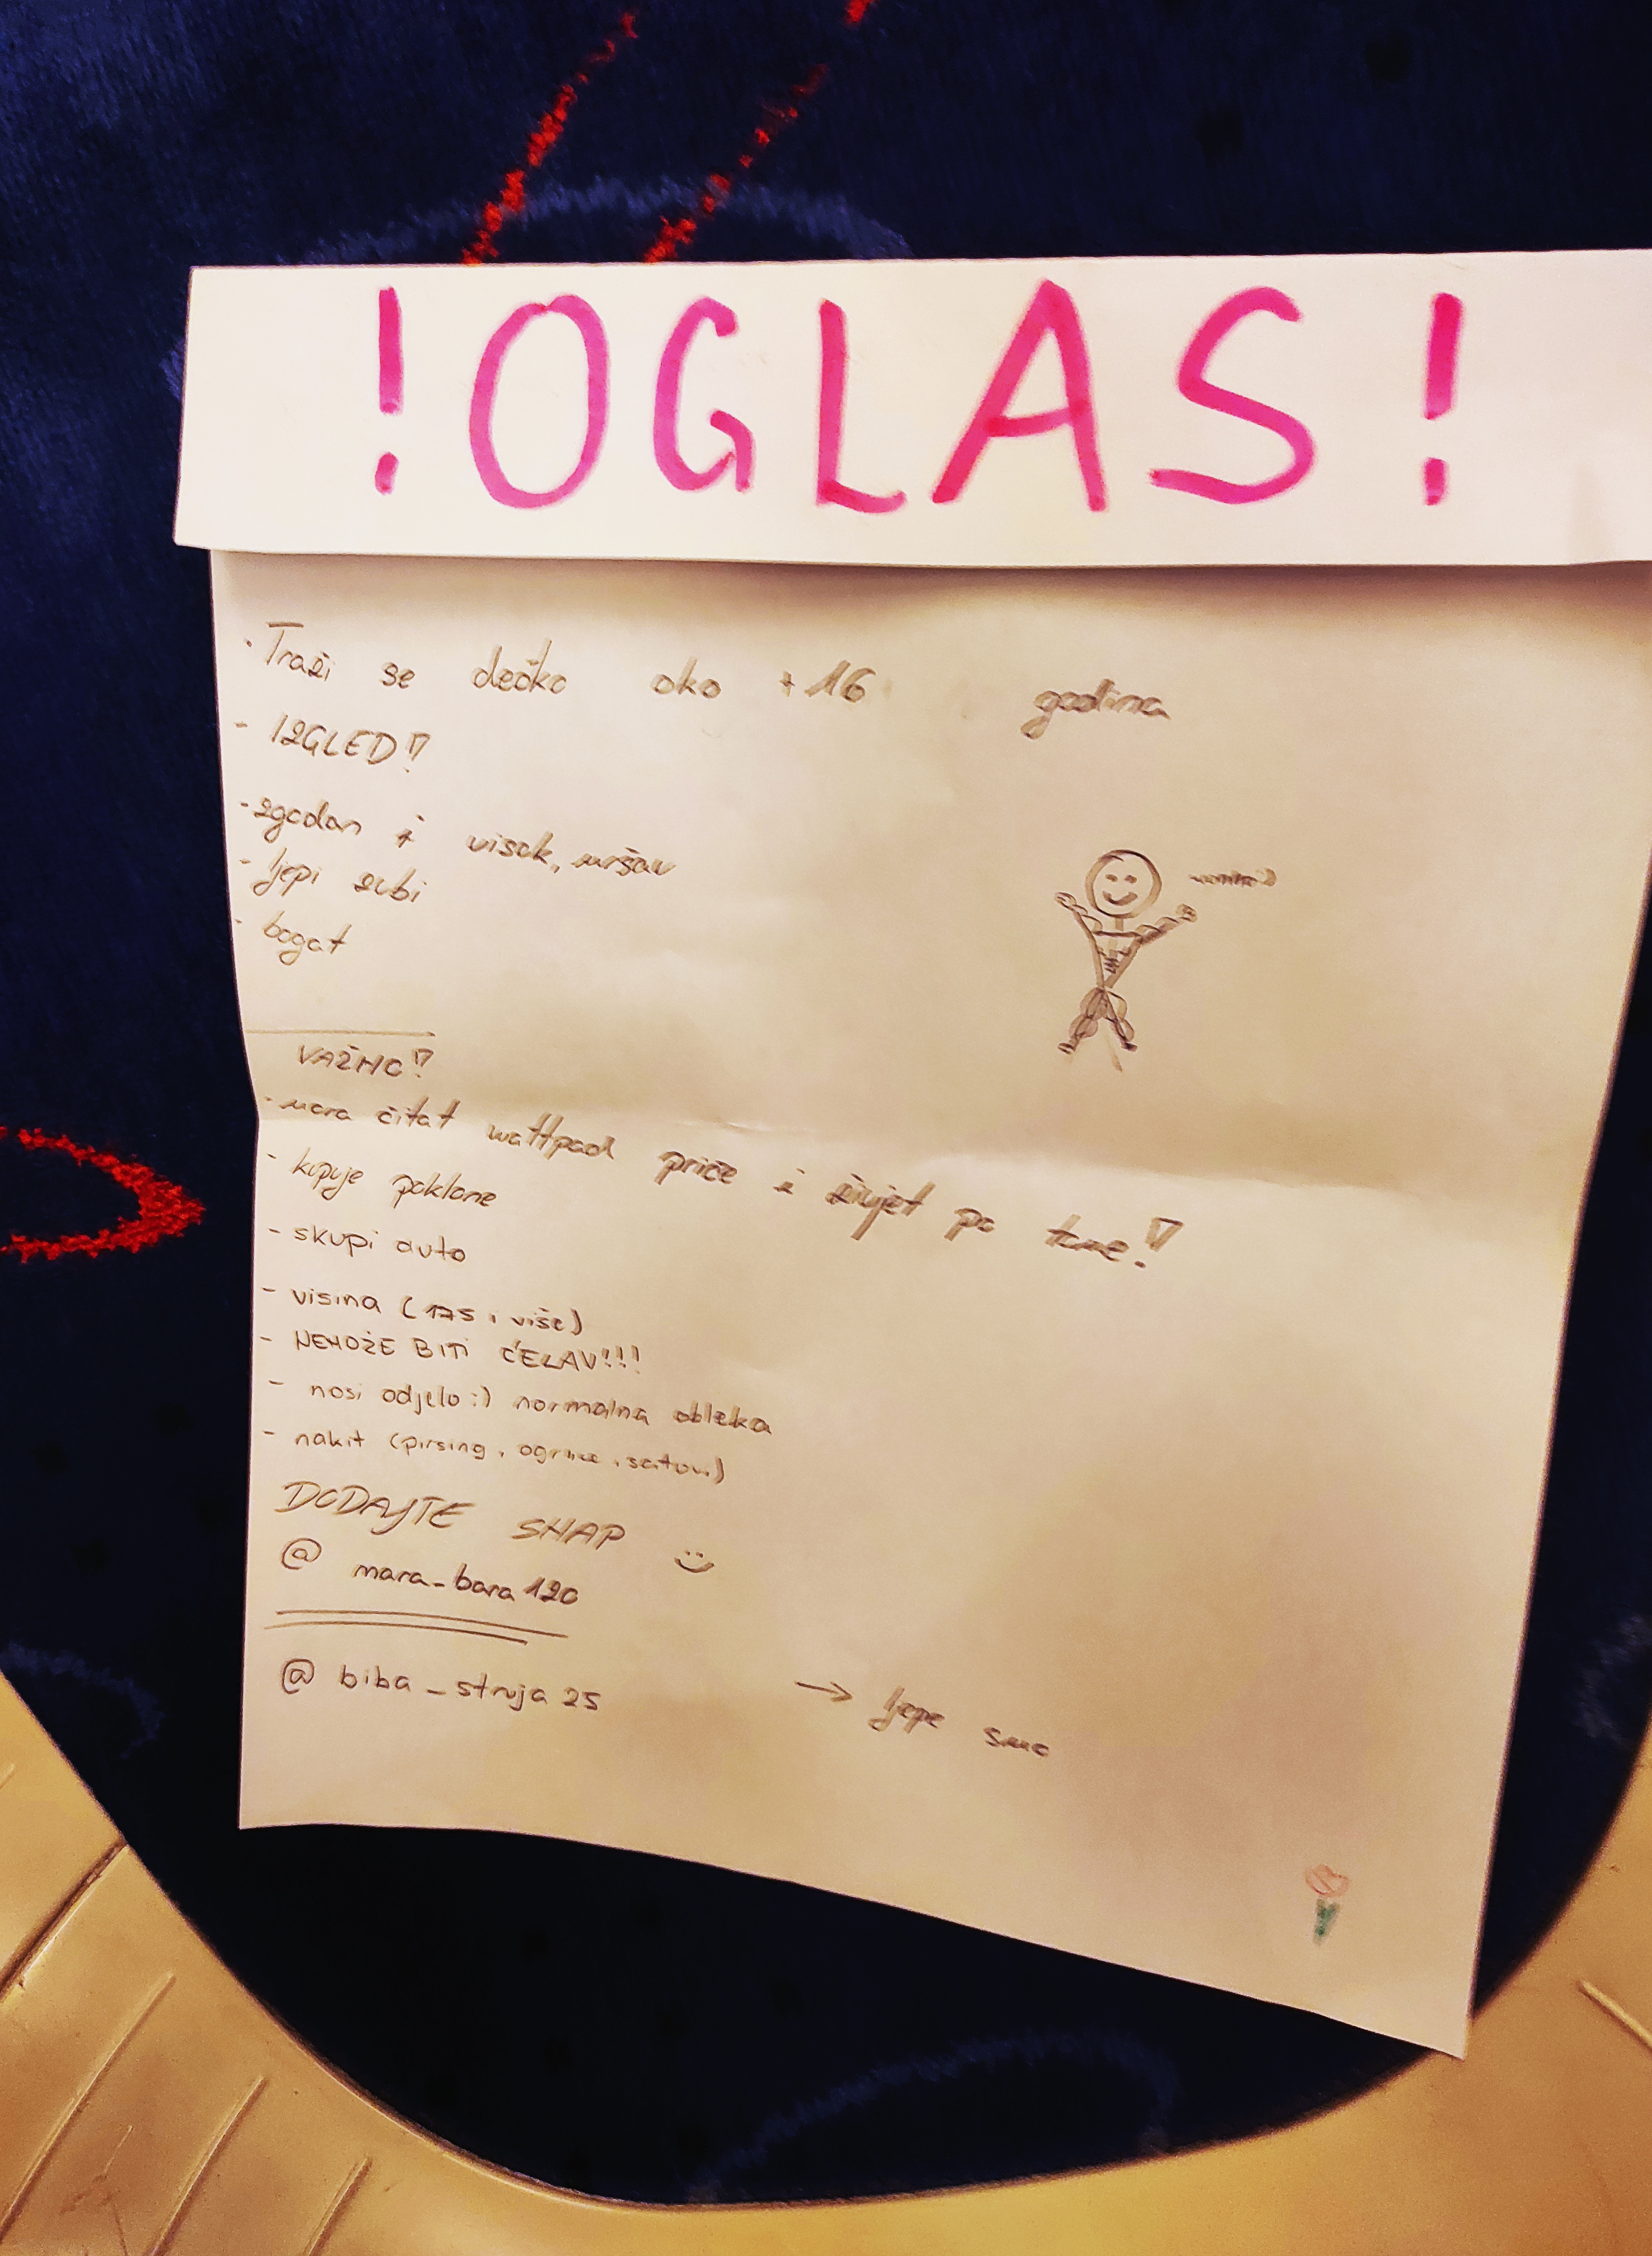 ! OGLAS !
· Traži se dečko oko +16 godina
- IZGLED!
- zgodan i visok, mršav
- ljepi zubi
- bogat
VAŽNO!
- mora čitat wattpad priče i živjet po tome!
- kupuje poklone
- skupi auto
- visina (175 i više)
- NEMOŽE BITI ĆELAV!!!
- nosi odjelo :) normalna obleka
- nakit (pirsing, ogrlice, satovi)
DODAJTE SNAP :)
@ mara_bara120
@ biba_struja25 → ljepe smo